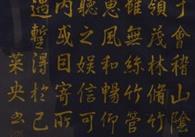 于會稽山陰
領茂林脩竹
雖無絲竹管
惠風和暢仰
聽之娛信可
內或因寄所
過蹔得於己